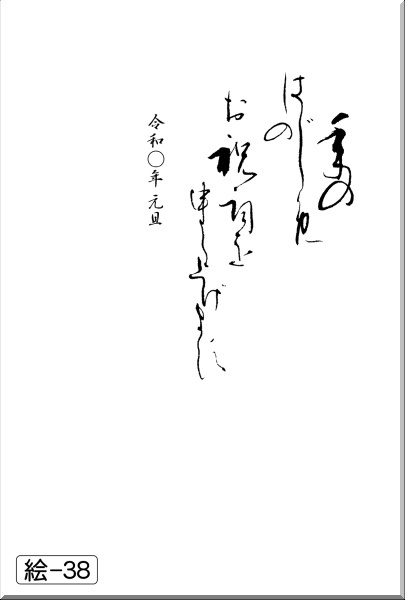 年の
はじめ
の
お祝詞を
申し上げます
令和○年 元旦
絵-38